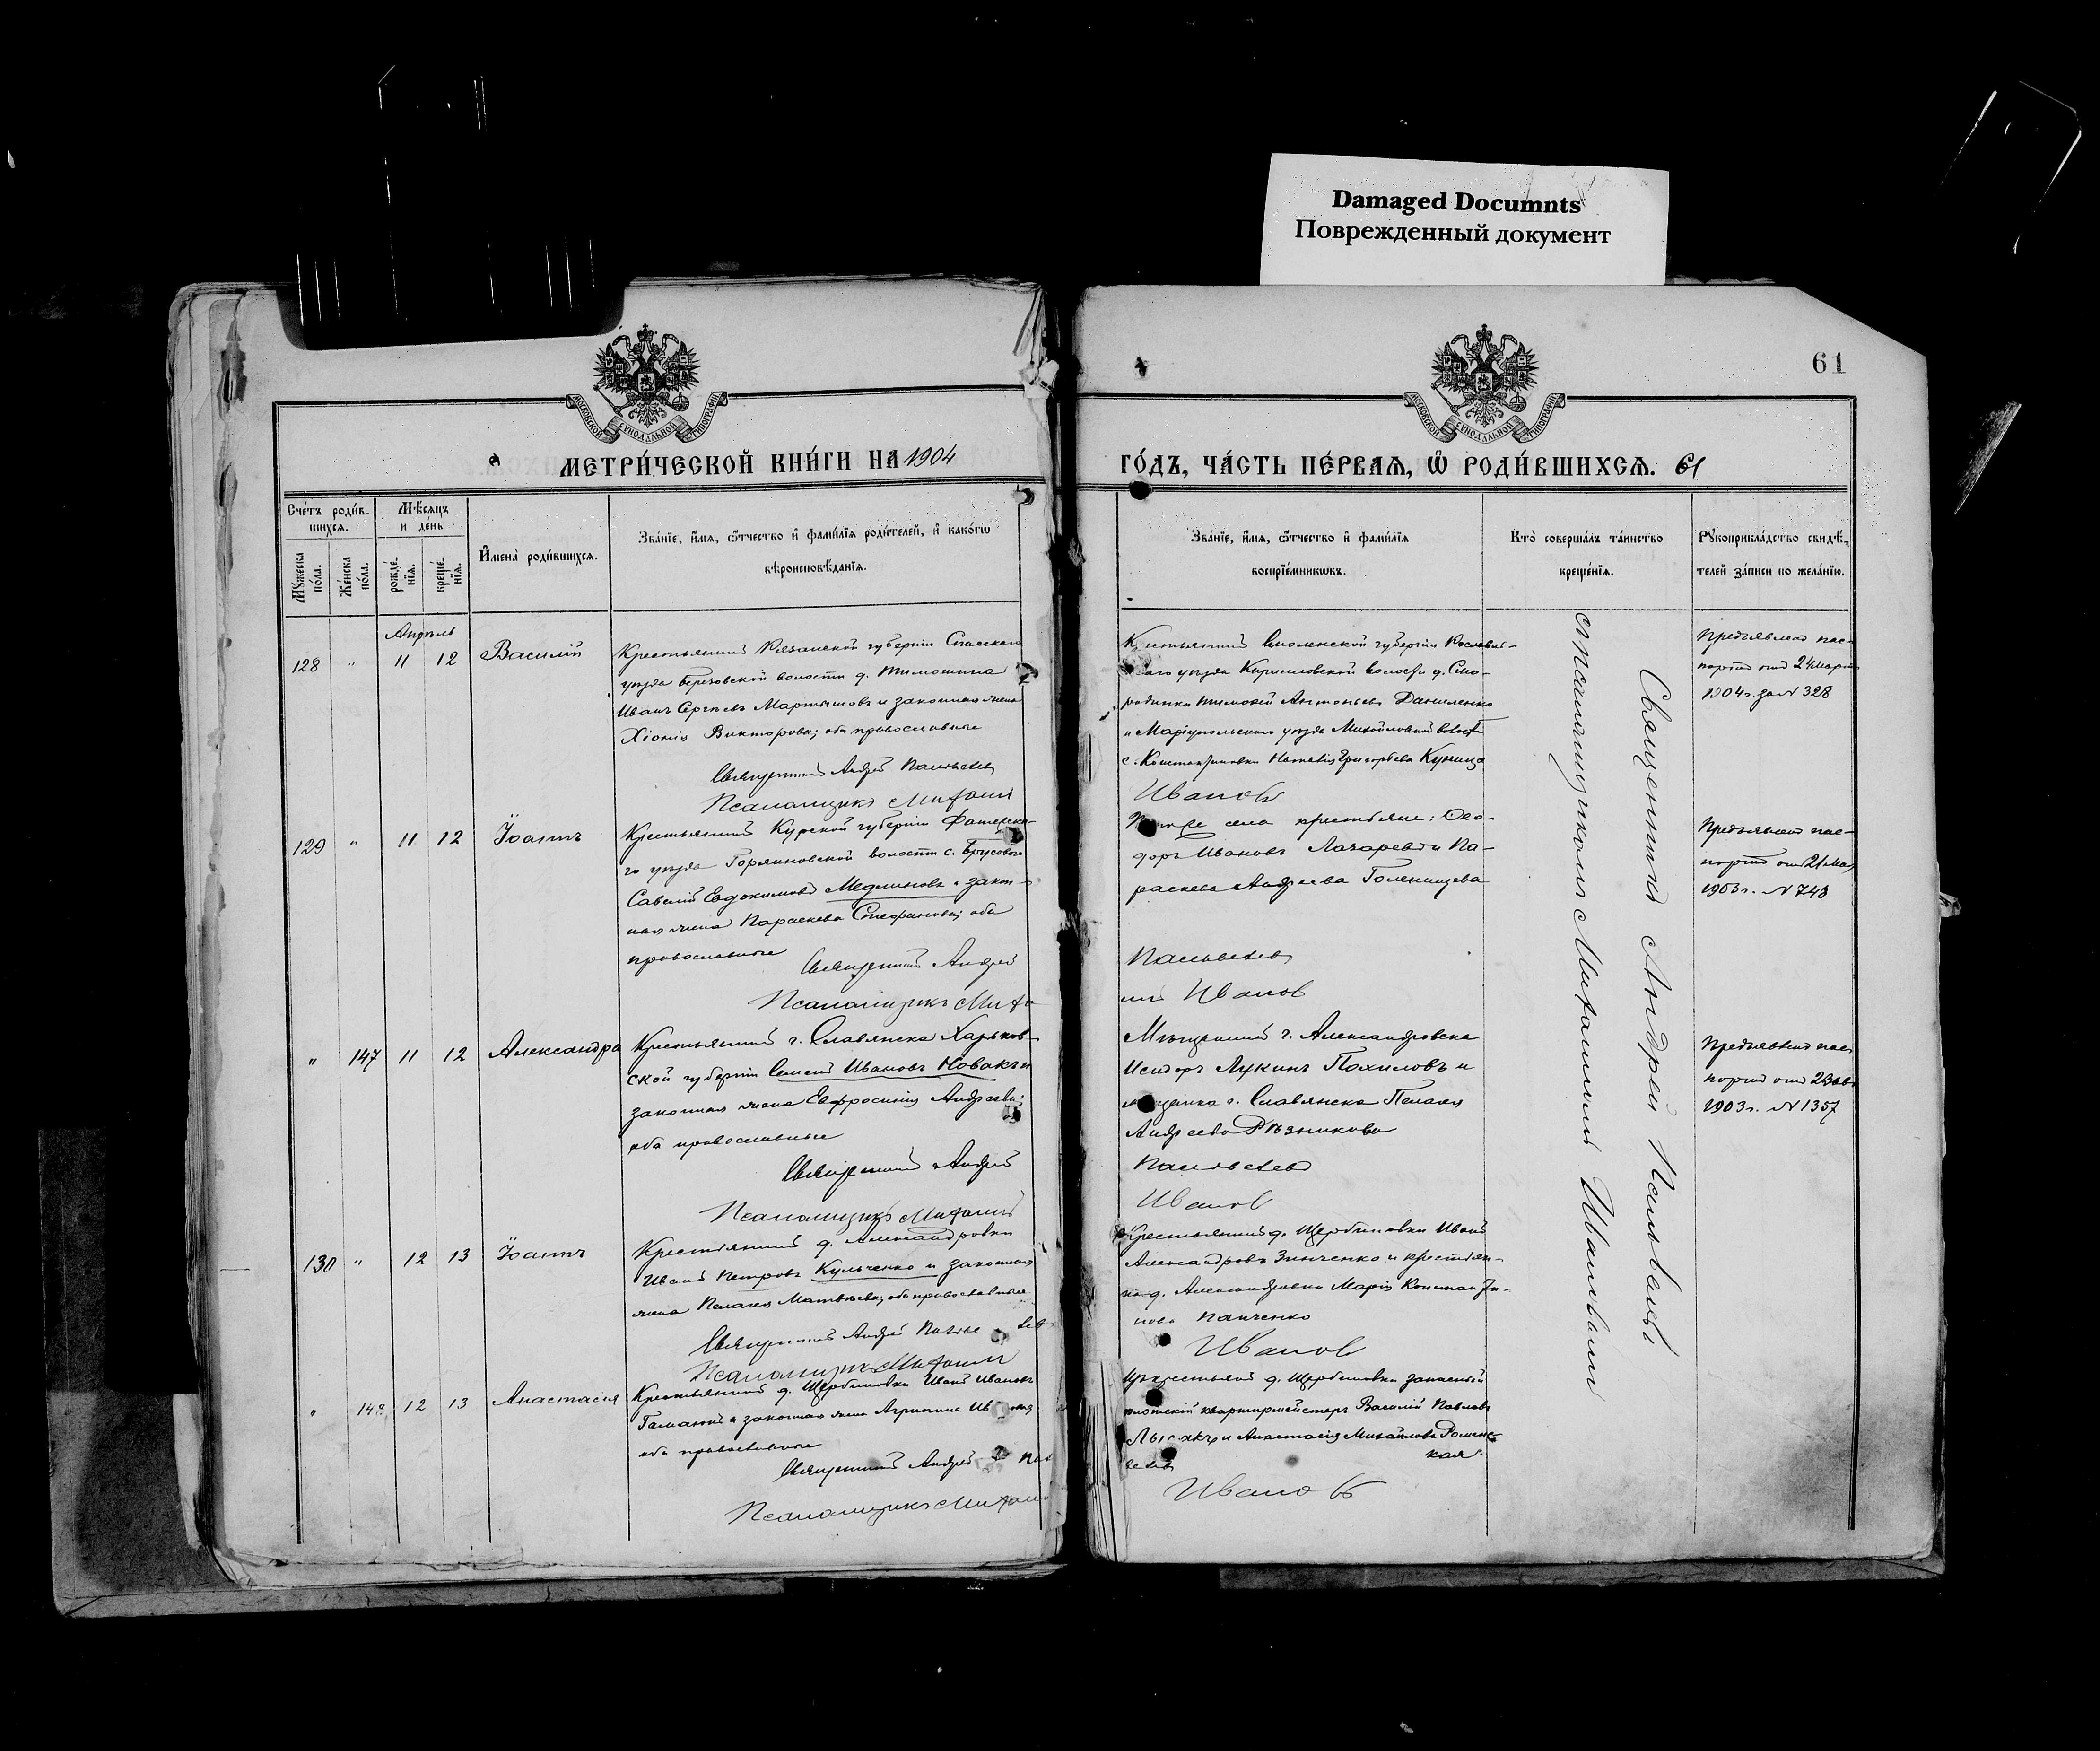 Damaged Documnts
Поврежденный документ
61
МОСКОВСКОЙ СѴНОДАЛЬНОЙ ТИПОГРАФІИ
МОСКОВСКОЙ СѴНОДАЛЬНОЙ ТИПОГРАФІИ
МЕТРИ́ЧЕСКОЙ КНИ́ГИ НА 1904
ГО́ДЪ, ЧА́СТЬ ПЕ́РВАЯ, Ѡ҆ РОДИ́ВШИХСЯ. 61
Сче́тъ роди́в-
шихся.
Мꙋ́жеска по́ла.
Же́нска по́ла.
Мѣ́сяцъ
и де́нь
рожде́-
нїя.
креще́-
нїя.
И҆мена̀ роди́вшихся.
Зва́нїе, и҆́мя, ѻ҆́тчество и҆ фами́лїя роди́телей, и҆ како́гѡ
вѣроисповѣ́данїя.
Зва́нїе, и҆́мя, ѻ҆́тчество и҆ фами́лїя
воспрїе́мникѡвъ.
Кто̀ соверша́лъ та́инство
креще́нїя.
Рꙋкоприкла́дство свидѣ́-
телей за́писи по жела́нїю.
Апрѣль
128 " 11 12 Василій
Крестьянинъ Рязанской губерніи Спасскаго
уѣзда Березовской волости д. Тимошкина
Иванъ Сергѣевъ Мартышовъ и законная жена
Хіонія Викторова; оба православные
Священникъ Андрей Памѣевъ
Псаломщикъ Михаилъ
Крестьянинъ Смоленской губерніи Рославль-
скаго уѣзда Кирилловской волости д. Смо-
родинки Тимоѳей Антоньевъ Даниленко
и Маріупольскаго уѣзда Михайловской волости
с. Константиновки Наталія Григорьева Куница
Ивановъ
Предъявленъ пас-
портъ отъ 24 марта
1904 г. за № 328
129 " 11 12 Іоаннъ
Крестьянинъ Курской губерніи Фатежска-
го уѣзда Горяиновской волости с. Брусового
Савелій Евдокимовъ Мединовъ и закон-
ная жена Параскева Стефанова; оба
православные
Священникъ Андрей
Псаломщикъ Миха
села крестьяне: Ѳео-
доръ Ивановъ Лазаревъ и Па-
раскева Андреева Голенищева
иловъ Иванов
Предъявленъ пас-
портъ отъ 21 мая
1903 г. № 743
" 147 11 12 Александра
Крестьянинъ г. Славянска Харьков-
ской губерніи Семенъ Ивановъ Новакъ и
законная жена Евфросинія Андреева;
оба православные
Священникъ Андрей
Псаломщикъ Михаилъ
Мѣщанинъ г. Александровска
Исидоръ Лукинъ Похиловъ и
мѣщанка г. Славянска Пелагея
Андреева Рѣзникова
Иванов
Предъявленъ пас-
портъ отъ
1903 г. № 1357
130 " 12 13 Іоаннъ
Крестьянинъ д. Александровки
Иванъ Петровъ Кульченко и законная
жена Пелагея Матвѣева; оба православные
Священникъ Андрей
Псаломщикъ Михаилъ
Крестьянинъ д. Щербиновки Иванъ
Александровъ Зинченко и крестьян-
ка д. Александровки Марія Константи-
нова Панченко
Иванов
" 148 12 13 Анастасія
Крестьянинъ д. Щербиновки Иванъ Ивановъ
Гаманюкъ и законная жена Агрипина Ив
оба православные
Священникъ Андрей
Псаломщикъ Михаи
крестьянъ д. Щербиновки запасный
флотскій квартирмейстеръ Василій Павловъ
Лысакъ и Анастасія Михайлова Роменс-
кая
Ивановъ
Священникъ Андрей
съ псаломщикомъ Михаиломъ Ивановымъ